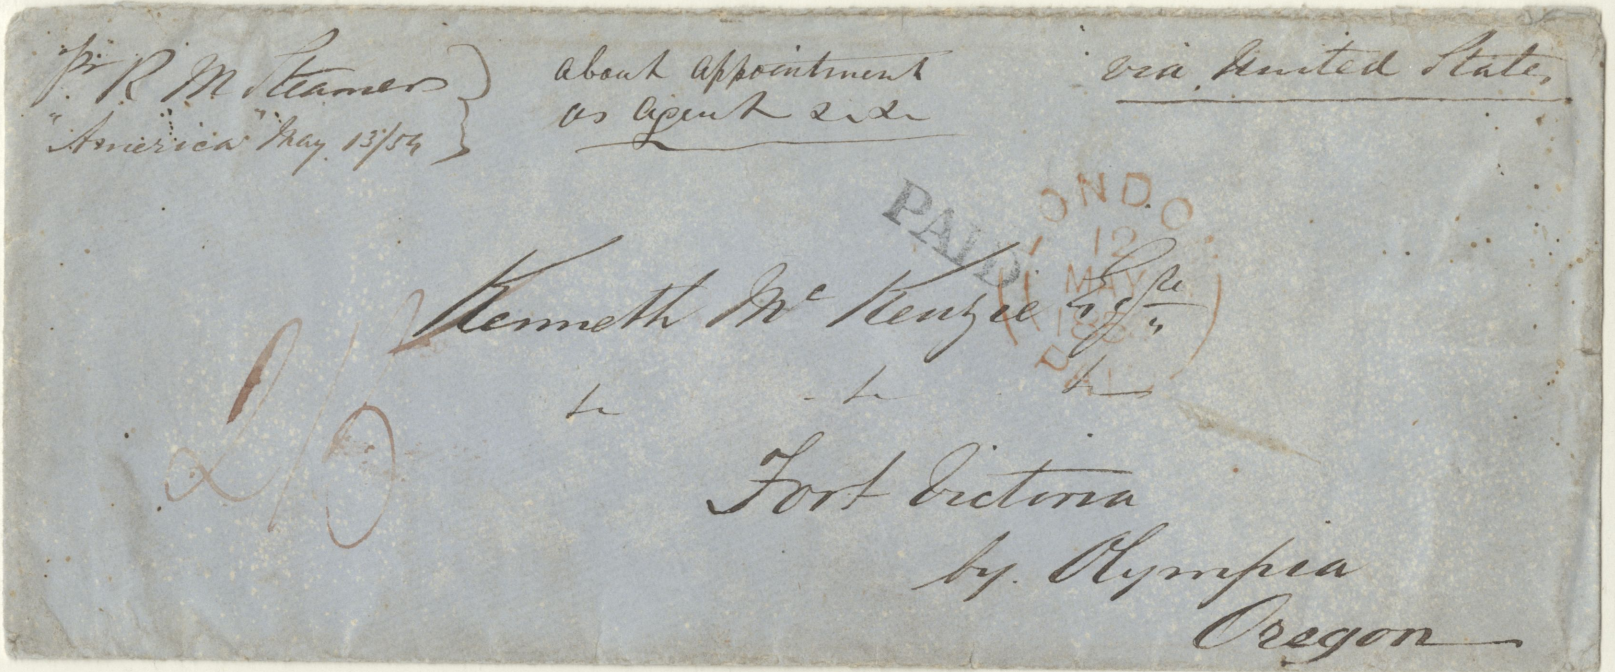 pr R M Steamer
"America" May 13/54
about appointment
as agent &c &c
via United States
PAID
LONDON
12
MAY
PAID
Kenneth McKenzie Esqre
&c &c &c
Fort Victoria
by Olympia
Oregon